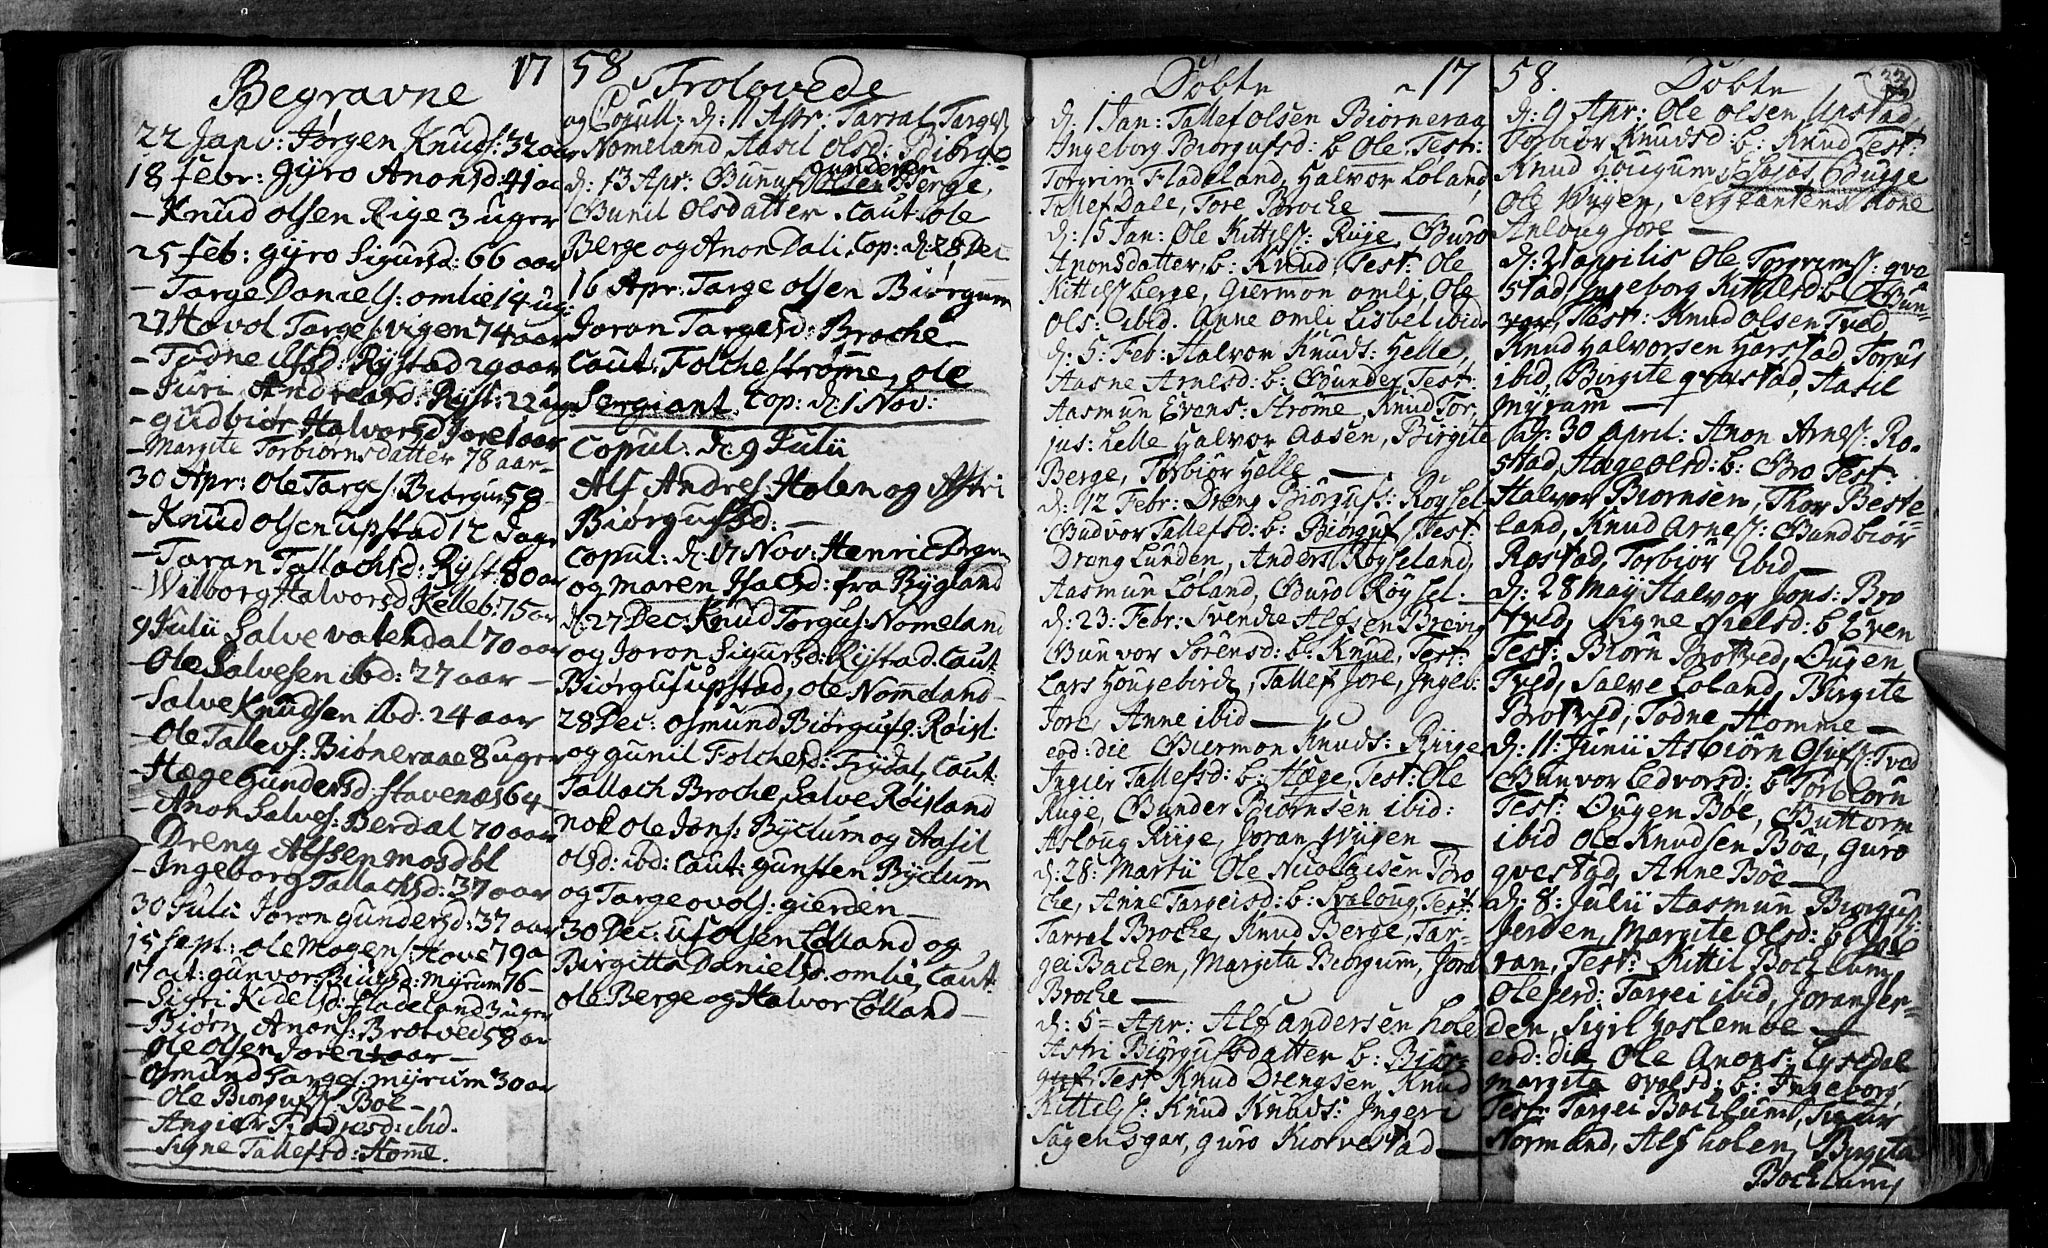 17
Begravne
22 Janv: Jørgen Knuds: 32 aar
18 Febr: Gyro Anonsd: 41 aa
– Knud Olsen Rige 3 uger
25 Feb: Gyro Sigursd: 66 aar
– Targe Daniels: omlie 14 ug:
27 Hovol Targes: vigen 74 aar
– Todne Ulsd: Rystad 29 aar
– Juri Andreasd: Ryst: 22 ug
– Gudbiør Halvorsd Jore 1 aar
– Margite Torbiørnsdatter 78 aar–
30 Apr: Ole Targes: Biørgum 58–
– Knud Olsen upstad 12 Dage
– Taran Tallachsd: Ryst: 80 aar
– Wilborg Halvorsd Kelleb: 75 aar
9 Julii Salve valendal 70 aar
– Ole Salvesen ibd: 27 aar –
– Salve Knudsen ibd: 24 aar
– Ole Tallevs: Biøneraae 8 uger
– Hæge Gundersd stavenæs 64 –
– Anon Salves: Berdal 70 aar
– Dreng Alfsen mosdøl
– Ingeborg Tallachsd: 37 aar
30 Julii Joron Gundersd: 37 aar
15 Sept: Ole Mogens: Hove 79 a
17 oct: Gunvor Biusd: myrum 76 –
– Sigri Kidelsd: Fladeland 3 uger
– Biørn Anons: Brotved 58 aar
– Ole Olsen Jore 24 aar –
– Osmund Targes: myrum 30 aar
– Ole Biørgufs: Bøe –
– Angier Tiødresd: ibid.
– Signe Tallefsd: Home.
58
Trolovede
og Copull: d: 11 Apr: Tarral Targes
Nomeland Aasil Olsd: Biørgo
Gundersen
d: 13 Apr: Gunuf Olsen Berge,
Gunil Olsdatter. Caut: Ole
Berge og Anon Dali. Cop: d: 28 Dec
16 Apr: Targe Olsen Biørgum
Joran Targesd: Broche –
Caut: Folche strømme, Ole
Sergiant. Cop: d: 1 Nov:
Copul: d: 9 Julii
Alf Andres: Holen og Astri
Biørgufsd: –
Copul: d: 17 Nov: Henric
og Maren Isachsd: fra Bygland
d: 27 Dec: Knud Torgus: Nomeland
og Joron Sigursd: Rystad. Caut:
Biørgufs upstad, Ole Nomeland –
28 Dec: Osmund Biørgufs: Røisl:
og Gunil Folchesd: Frødal, Caut:
Tallach Broche, Salve Røisland
nok Ole Jons: Byclum og Aasil
Olsd: ibd: Caut: Gunsten Byclum
og Targe ovols: gierden –
30 Dec: Uf Olsen Lølland og
Birgitta Danielsd: omlie, Caut:
Ole Berge og Halvor Lølland –
Døbte 17
d: 1 Jan: Tallef Olsen Biørneraa
Ingeborg Biørgufsd: b Ole. Test:
Torgrim Fladeland, Halvor Løland,
Tallef Dale, Tore Broche –
d: 15 Jan: Ole Kittels: Ruge, Guro
Anonsdatter, b: Knud, Test: Ole
Kittels: berge, Giermon omli, Ole
Ols: ibid. Anne omli Lisbet ibid
d: 5: Feb: Halvor Knuds: Helle,
Aasne Arnesd: b: Gunder, Test:
Aasmun Evens: Strøme, Knud Tor,
jus: helle Halvor Aasen, Birgite
Berge, Torbiør Helle –
d: 12 Febr: Dreng Biørgufs: Røysel
Gudvor Tallefsd: b: Biørguf, Test:
Dreng Lunden, Anders Røyseland,
Aasmun Løland, Guro Røysel:
d: 23: Febr: Svenche Alfsen Brevig
Gunvor Sørensd: b: Knud, Test:
Lars Hougebirch, Tallef Jore, Ingeb:
Jore, Anne ibid –
eod: die Giermon Knuds: Riige
Ingier Tallefsd: b: Hæge, Test: Ole
Ruge, Gunder Biørnsen ibid:
Asloug Riige, Joran Wiigen –
d: 28: Martii Ole Nicolaisen Bro
che, Anne Targeisd: b: Svaloug, Test:
Tarral Broche, Knud Berge, Tar-
gei Bachen, Margita Biørgum, Jora
Broche –
d: 5 – Apr: Alf Andersen hole
Astri Biørgufsdatter b: Biør-
guf. Test Knud Drengsen, Knud
Kittels: Knud Knuds: Ingeri
Sagens gar, Guro Kiørvestad –
58. Døbte
d: 9 Apr: Ole Olsen Upstad,
Torbiør Knudsd: b: Knud Test:
Knud Hougum,
Ole Wiigen, Sergeantens Kone
Anloug Jore –
d: 21 Aprilis Ole Torgrims: qve
stad, Ingeborg Kittilsd: b Gun-
var, Test: Knud Olsen Tved,
Knud Halvorsen Harstad, Torjus
ibid, Birgite qvistad, Aasil
Myrum –
d: 30 April: Anon Arnes: Ro-
stad, Hæge Olsd: b: Gro Test:
Halvor Biørnsen, Thor Beste-
land, Knud Arnes: Gundbiør
Rostad, Torbiør Ibid –
d: 28 Maij Halvor Jons: Bro
tved, Signe Nielsd: b Even
Test: Biørn Brotved, Ougen
Tved, Salve Løland, Birgite
Brotved, Todne Homme –
d: 11: Junii Asbiørn Olufs: Tved
Gunvor Edvorsd: b Torbiørn
Test: Ougen Bøe, Guttorm
ibid Ole Knudsen Bøe, Guro
qvestad, Anne Bøe –
d: 8: Julii Aasmun Biørgufs:
Jerden, Margite Olsd: b
ran, Test: Kittil Bochlum,
Ole Jerd: Targei ibid, Joran Jer-
den, Sigil Haslemoe –
eod: die, Ole Anons: Lysedal
Margita ovolsd: b: Ingeborg,
Test: Targei Bochlum, Sigur
Normand, Alf holen, Birgita
Bochlum,